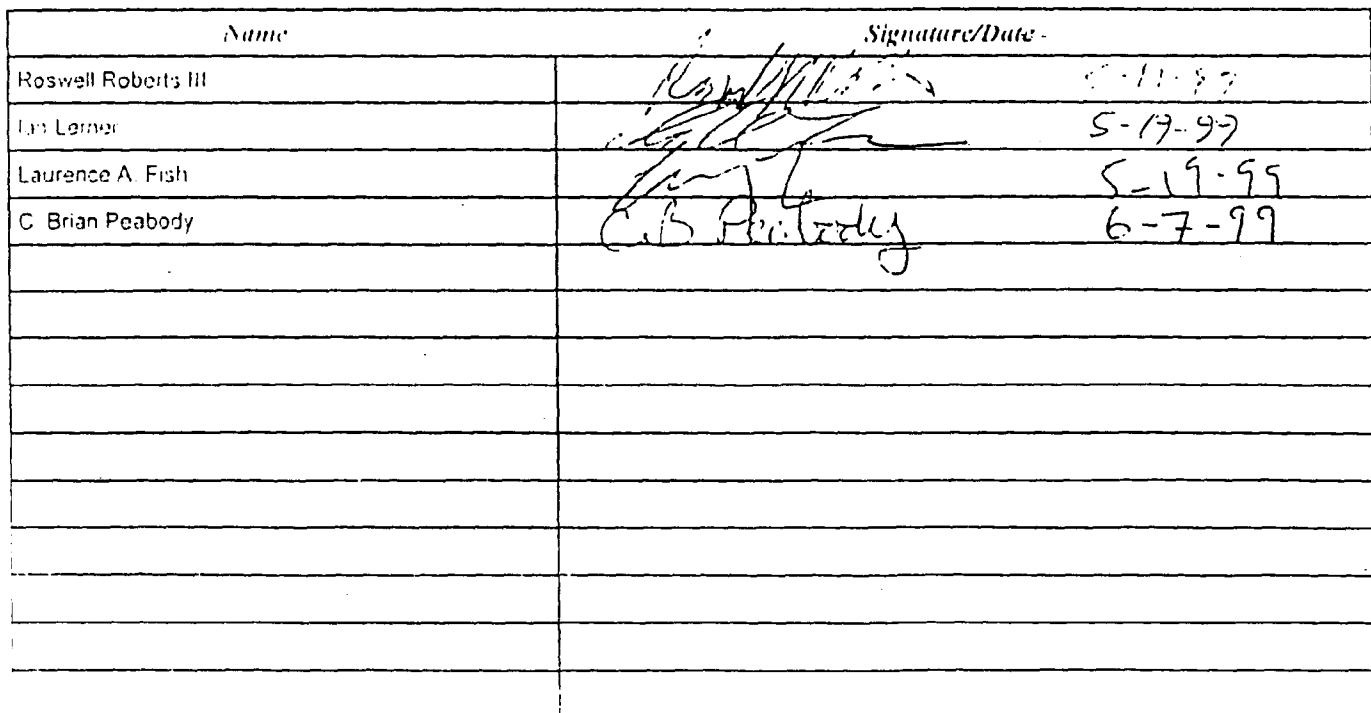 Name Signature/Date
Roswell Roberts III
Ian Lerner 5-19-99
Laurence A. Fish 5-19-99
C Brian Peabody C.B. Peabody 6-7-99